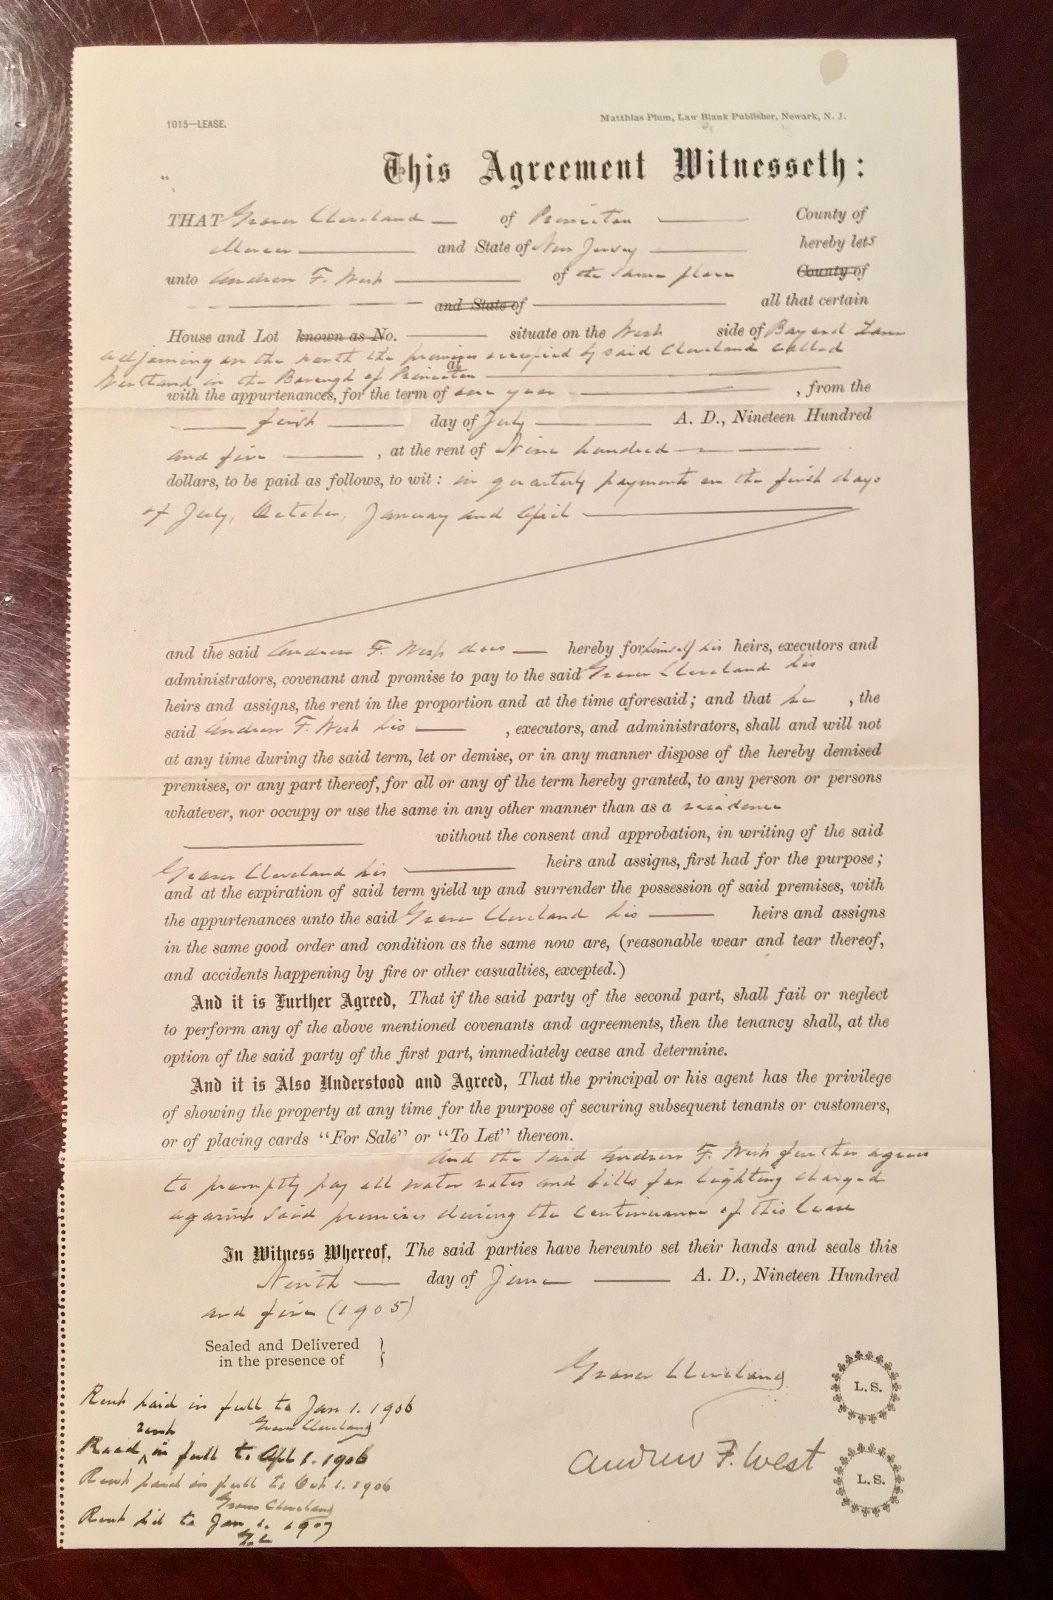 1015—LEASE.
Matthias Plum, Law Blank Publisher, Newark, N. J.
This Agreement Witnesseth:
THAT Grover Cleveland of Princeton County of
Mercer and State of New Jersey hereby lets
unto Andrew F. West of the same place County of
and State of all that certain
House and Lot known as No. situate on the West side of Bayard Lane
adjoining on the north the premises occupied by said Cleveland called
Westland in the Borough of Princeton
with the appurtenances, for the term of one year, from the
first day of July A. D., Nineteen Hundred
and five, at the rent of Nine hundred
dollars, to be paid as follows, to wit: in quarterly payments on the first days
of July, October, January and April
and the said Andrew F. West does hereby for himself his heirs, executors and
administrators, covenant and promise to pay to the said Grover Cleveland his
heirs and assigns, the rent in the proportion and at the time aforesaid; and that he, the
said Andrew F. West his, executors, and administrators, shall and will not
at any time during the said term, let or demise, or in any manner dispose of the hereby demised
premises, or any part thereof, for all or any of the term hereby granted, to any person or persons
whatever, nor occupy or use the same in any other manner than as a residence
without the consent and approbation, in writing of the said
Grover Cleveland his heirs and assigns, first had for the purpose;
and at the expiration of said term yield up and surrender the possession of said premises, with
the appurtenances unto the said Grover Cleveland his heirs and assigns
in the same good order and condition as the same now are, (reasonable wear and tear thereof,
and accidents happening by fire or other casualties, excepted.)
And it is Further Agreed, That if the said party of the second part, shall fail or neglect
to perform any of the above mentioned covenants and agreements, then the tenancy shall, at the
option of the said party of the first part, immediately cease and determine.
And it is Also Understood and Agreed, That the principal or his agent has the privilege
of showing the property at any time for the purpose of securing subsequent tenants or customers,
or of placing cards "For Sale" or "To Let" thereon.
And the said Andrew F. West further agrees
to promptly pay all water rates and bills for lighting charged
against said premises during the continuance of this lease
In Witness Whereof, The said parties have hereunto set their hands and seals this
Ninth day of June A. D., Nineteen Hundred
and five (1905)
Sealed and Delivered
in the presence of
Grover Cleveland L. S.
Andrew F. West L. S.
Rent paid in full to Jan 1. 1906
Grover Cleveland
rent
in full to Apl 1. 1906
Rent paid in full to Oct 1. 1906
Grover Cleveland
Rent to Jan 1. 1907
G. C